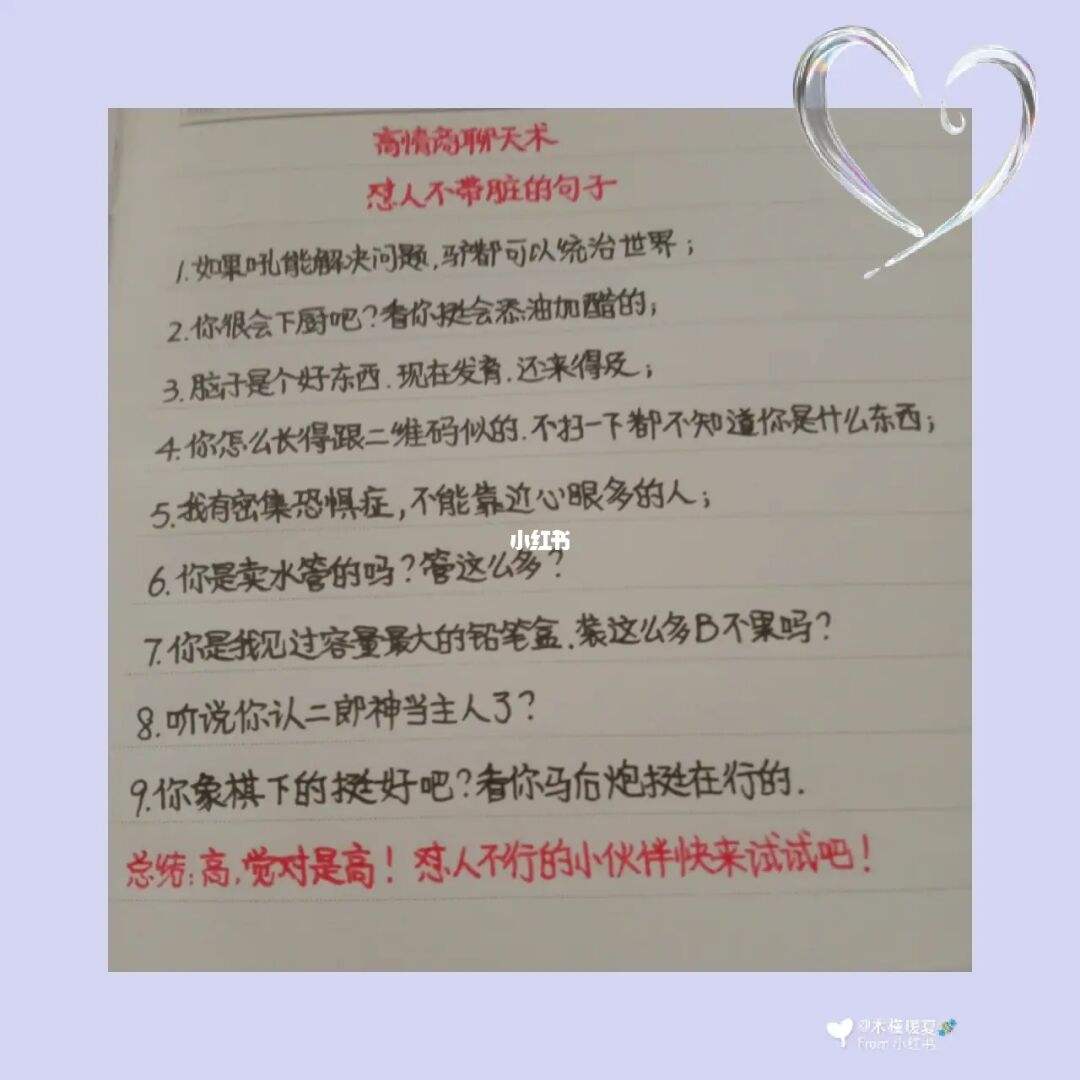 高情商聊天术
怼人不带脏的句子
1.如果吼能解决问题,驴都可以统治世界;
2.你很会下厨吧?看你挺会添油加醋的;
3.脑子是个好东西.现在发育.还来得及;
4.你怎么长得跟二维码似的.不扫一下都不知道你是什么东西;
5.我有密集恐惧症,不能靠近心眼多的人;
小红书
6.你是卖水管的吗?管这么多?
7.你是我见过容量最大的铅笔盒.装这么多B不累吗?
8.听说你认二郎神当主人了?
9.你象棋下的挺好吧?看你马后炮挺在行的.
总结:高,觉对是高!怼人不行的小伙伴快来试试吧!
@木槿暖夏
From 小红书